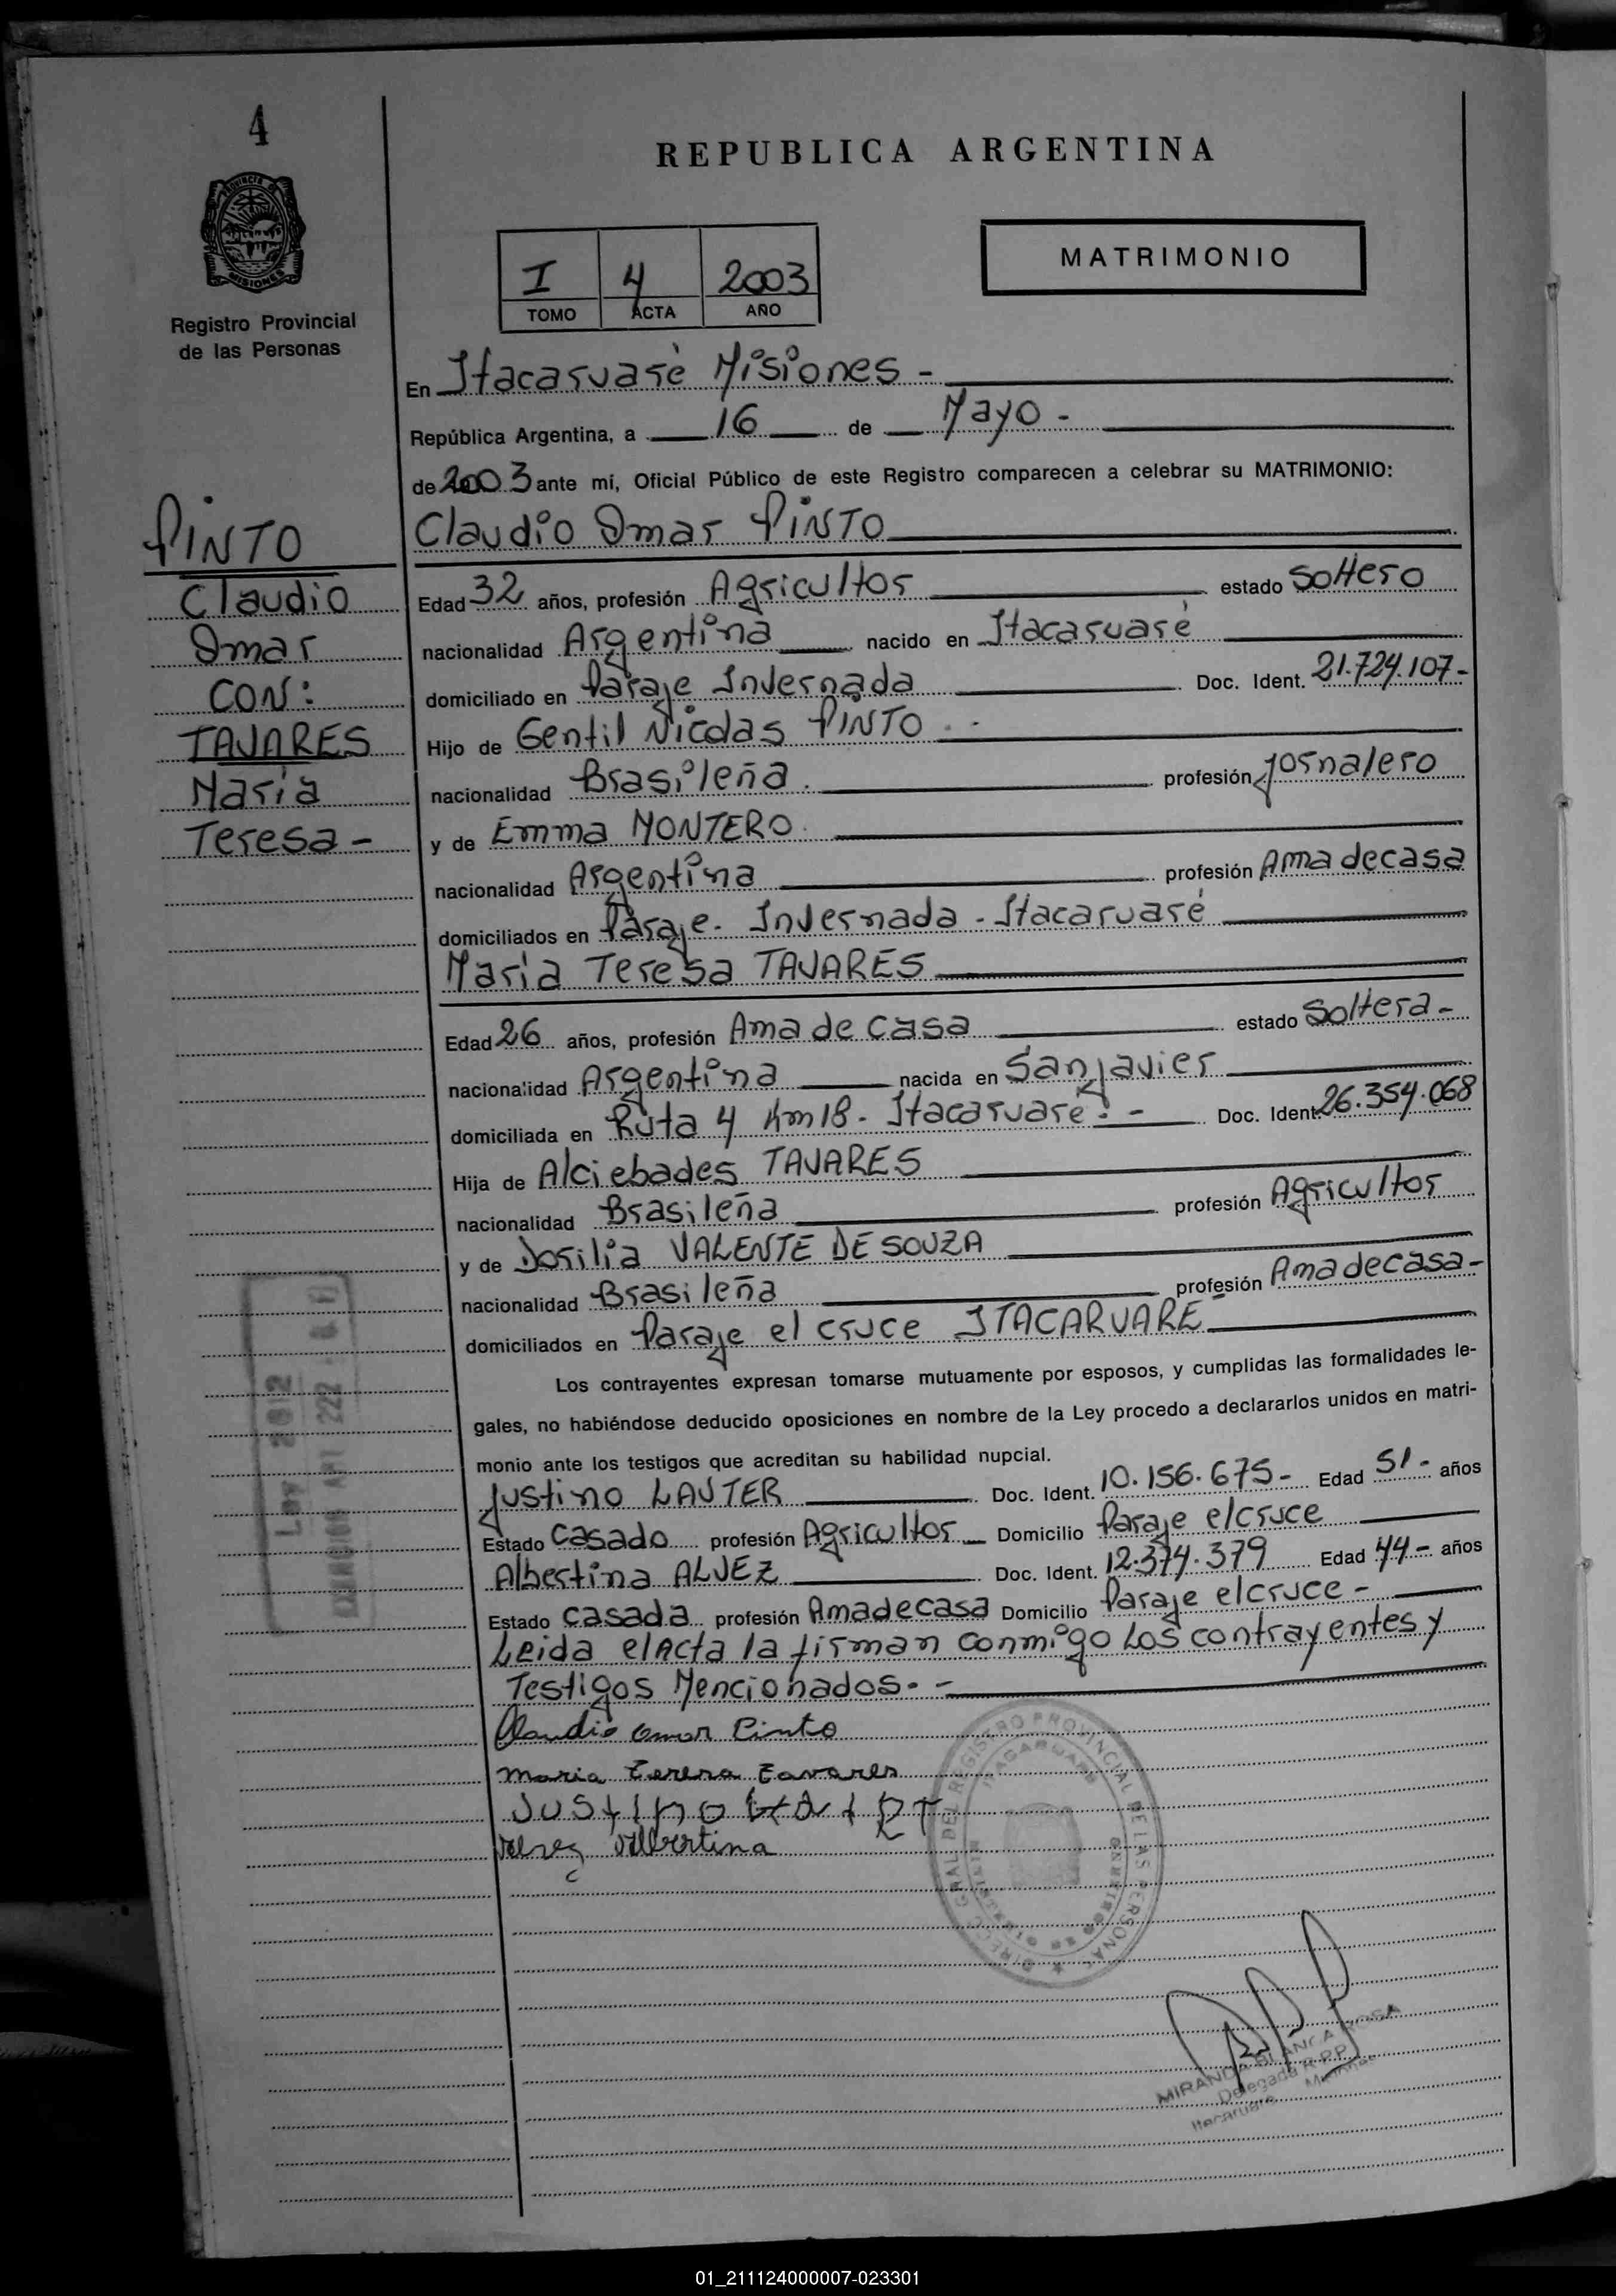 4
REPUBLICA ARGENTINA
PROVINCIA DE
MISIONES
I 4 2003
TOMO ACTA AÑO
MATRIMONIO
Registro Provincial
de las Personas
En Itacaruaré Misiones -
República Argentina, a 16 de Mayo -
de 2003 ante mí, Oficial Público de este Registro comparecen a celebrar su MATRIMONIO:
PINTO
Claudio
Omar
CON:
TAVARES
Maria
Teresa -
Claudio Omar PINTO
Edad 32 años, profesión Agricultor estado Soltero
nacionalidad Argentina nacido en Itacaruaré
domiciliado en Paraje Invernada Doc. Ident. 21.724.107-
Hijo de Gentil Nicolas PINTO . -
nacionalidad Brasileña. profesión jornalero
y de Emma MONTERO.
nacionalidad Argentina profesión Ama de casa
domiciliados en Paraje- Invernada - Itacaruaré
Maria Teresa TAVARES
Edad 26 años, profesión Ama de casa estado Soltera -
nacionalidad Argentina nacida en San Javier
domiciliada en Ruta 4 Km 18 - Itacaruaré. - Doc. Ident. 26.354.068
Hija de Alciebades TAVARES
nacionalidad Brasileña profesión Agricultor
y de Dorilia VALENTE DE SOUZA
nacionalidad Brasileña profesión Ama de casa -
domiciliados en Paraje el cruce ITACARUARÉ
Los contrayentes expresan tomarse mutuamente por esposos, y cumplidas las formalidades le-
gales, no habiéndose deducido oposiciones en nombre de la Ley procedo a declararlos unidos en matri-
monio ante los testigos que acreditan su habilidad nupcial.
Justino LAUTER Doc. Ident. 10.156.675- Edad 51- años
Estado Casado profesión Agricultor Domicilio Paraje el cruce
Albertina ALVEZ Doc. Ident. 12.374.379 Edad 44- años
Estado Casada profesión Ama de casa Domicilio Paraje el cruce -
Leida el Acta la firman conmigo Los contrayentes y
Testigos Mencionados. -
Claudio Omar Pinto
Maria Teresa Tavares
Justino
Albertina
REGISTRO PROVINCIAL DE LAS PERSONAS
ITACARUARE
MIRANDA BLANCA ROSA
Delegada R.P.P.
Itacaruaré Misiones
01_211124000007-023301